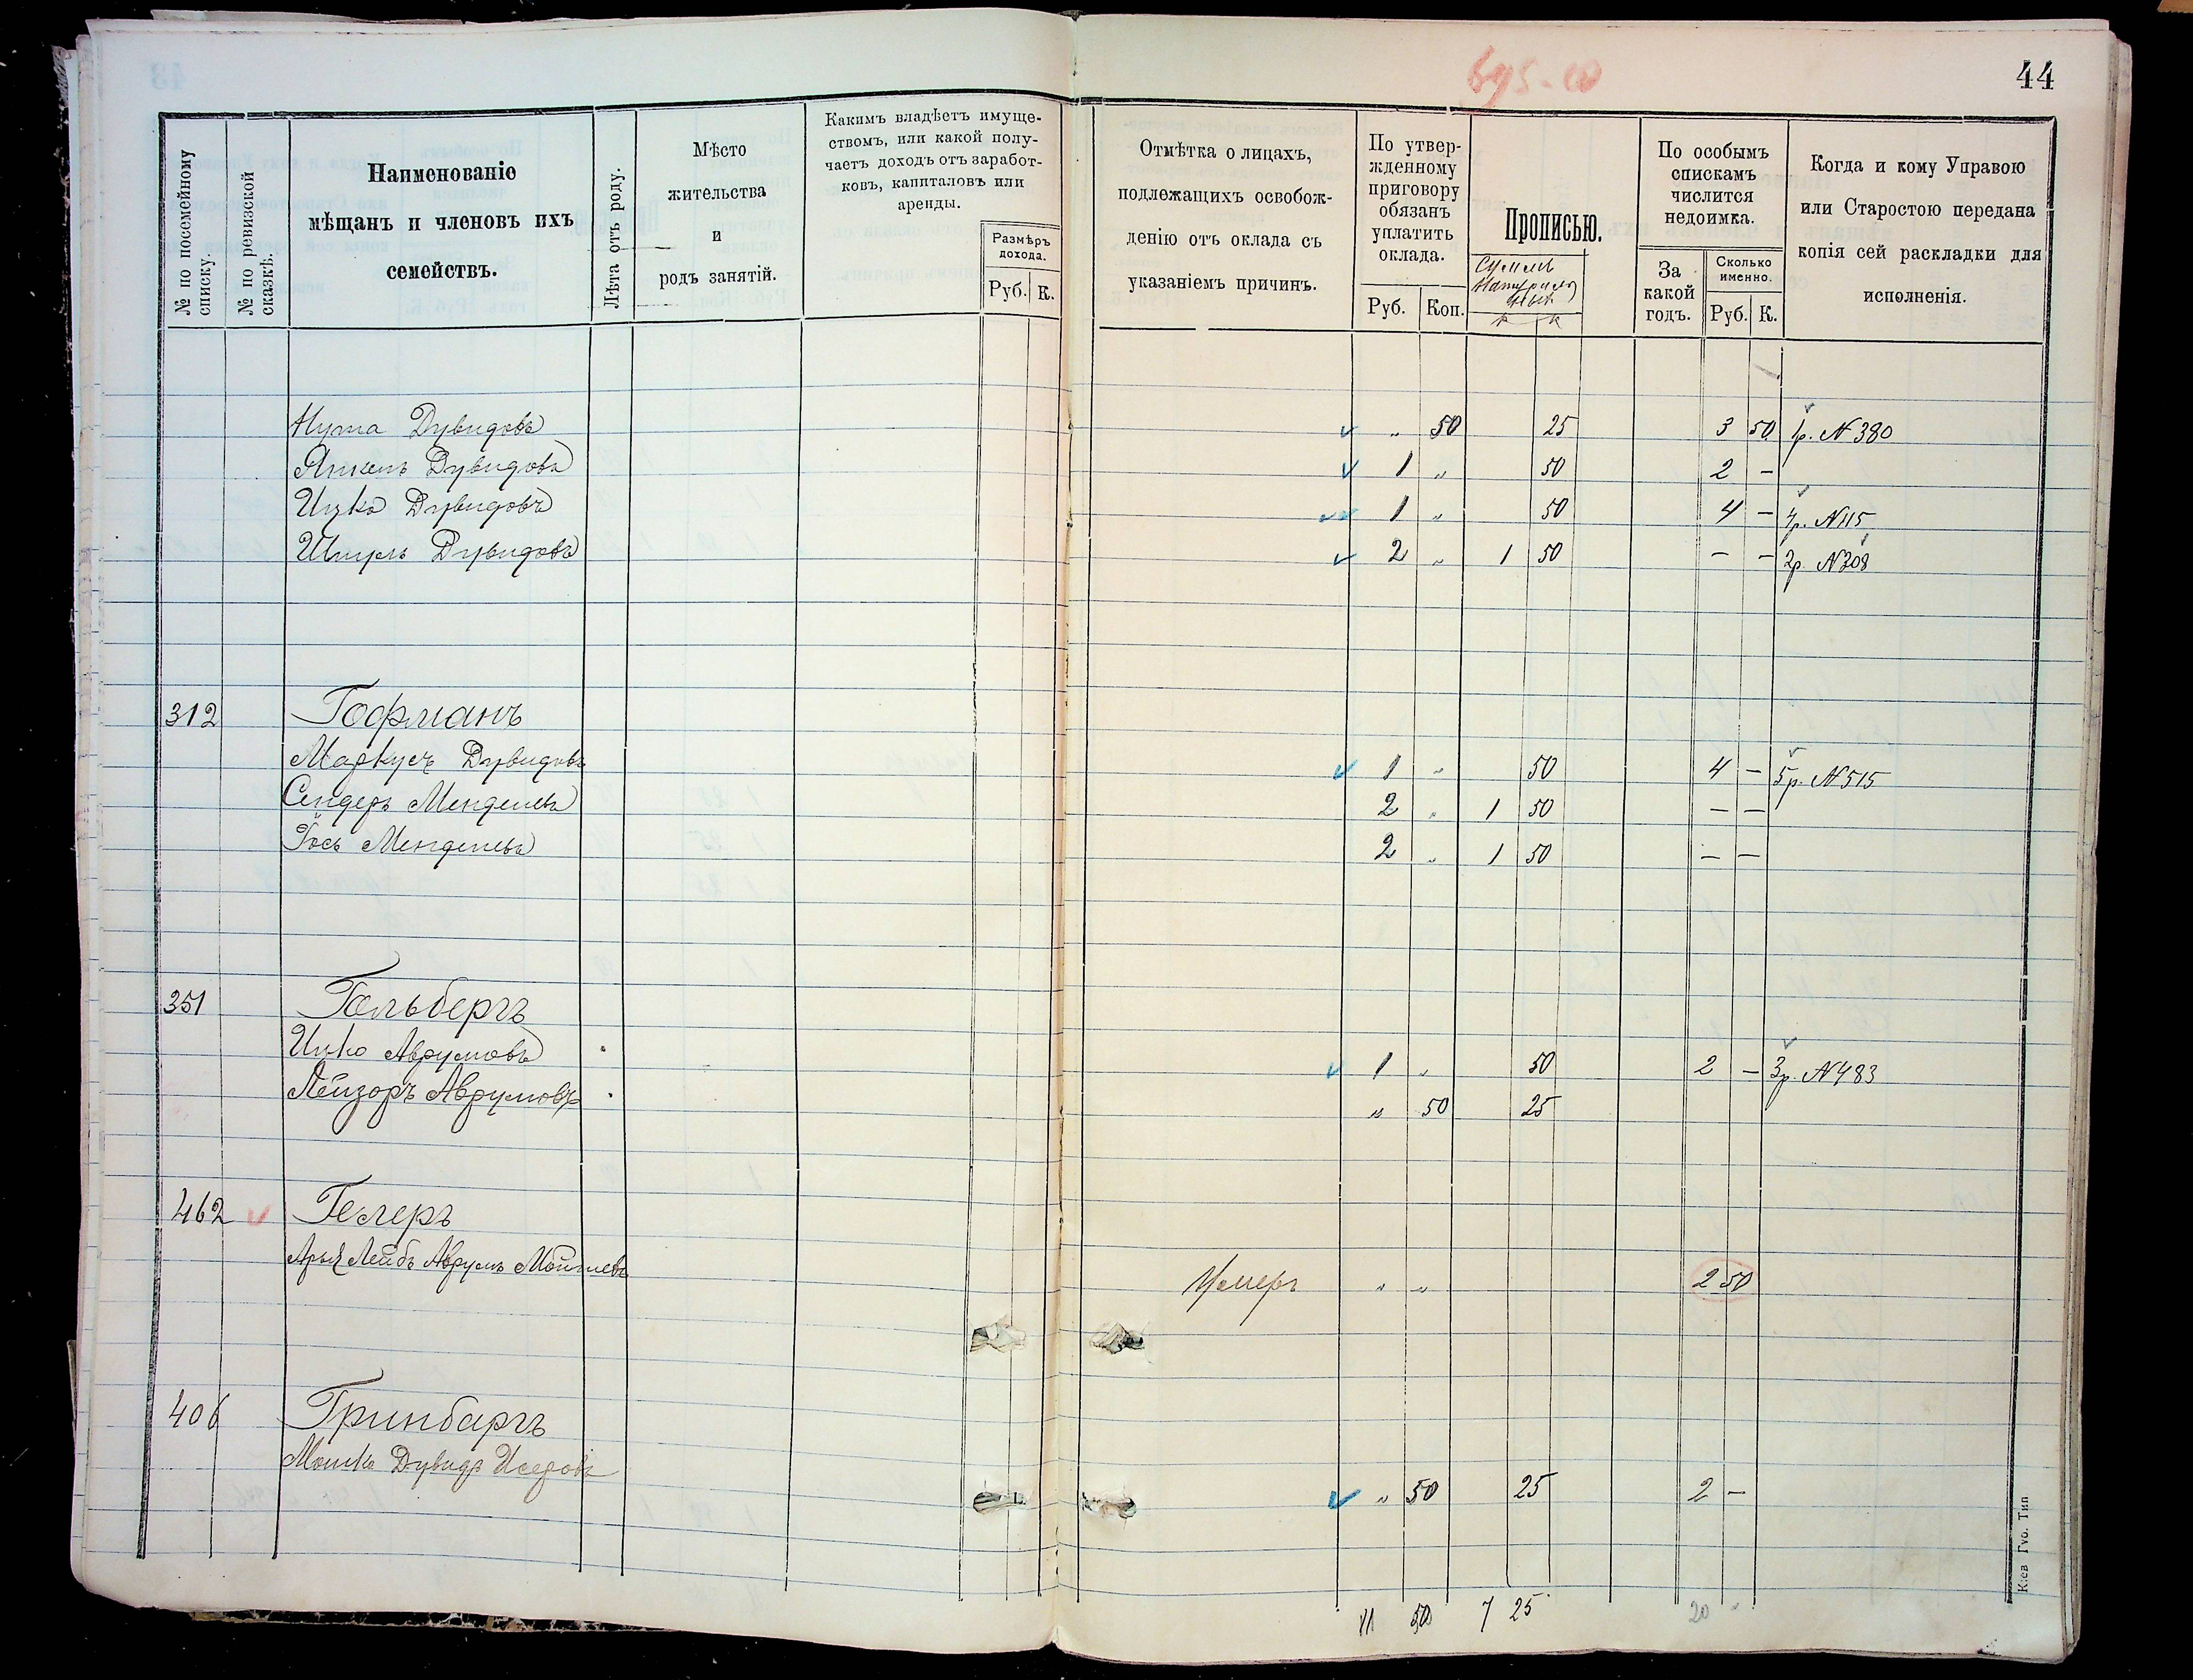 44
№ по посемейному списку.
№ по ревизской сказкѣ.
Наименованіе
мѣщанъ и членовъ ихъ
семействъ.
Лѣта отъ роду.
Мѣсто
жительства
и
родъ занятій.
Какимъ владѣетъ имуще-
ствомъ, или какой полу-
чаетъ доходъ отъ заработ-
ковъ, капиталовъ или
аренды.
Размѣръ
дохода.
Руб. К.
Отмѣтка о лицахъ,
подлежащихъ освобож-
денію отъ оклада съ
указаніемъ причинъ.
По утвер-
жденному
приговору
обязанъ
уплатить
оклада.
Руб. Коп.
Прописью.
По особымъ
спискамъ
числится
недоимка.
За
какой
годъ.
Сколько
именно.
Руб. К.
Когда и кому Управою
или Старостою передана
копія сей раскладки для
исполненія.
Нута Дувидовъ " 50 25 3 50 1р. № 380
Янкель Дувидовъ 1 " 50 2 -
Ицко Дувидовъ 1 " 50 4 - 4р. № 115
Шмуль Дувидовъ 2 " 1 50 - - 2р. № 208
312 Гофманъ
Маркусъ Дувидовъ 1 " 50 4 - 5р. № 515
Сендеръ Менделевъ 2 " 1 50 - -
Йось Менделевъ 2 " 1 50 - -
351 Гольбергъ
Ицко Аврумовъ 1 " 50 2 - 3р. № 483
Лейзоръ Аврумовъ " 50 25
462 Гелеръ
Арья Лейбъ Аврумъ Мойшевъ Умеръ " " 2 50
406 Гринбаргъ
Мошко Дувидъ Исеровъ " 50 25 2 -
11 50 7 25 20 "
Кіев Губ. Тип